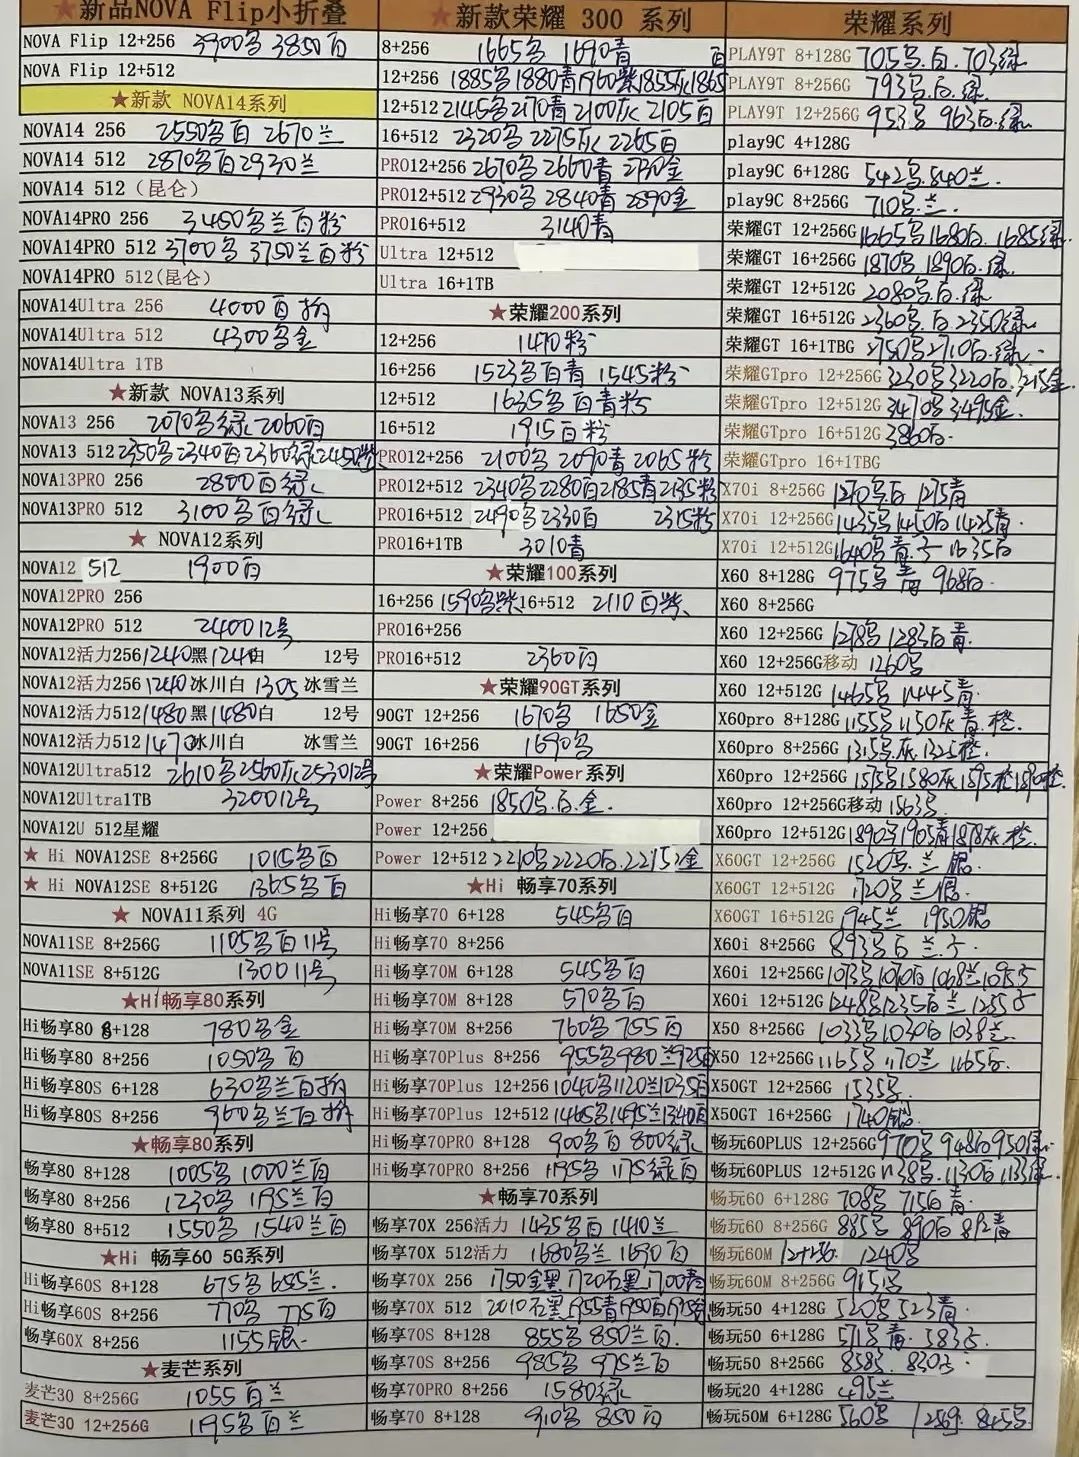 ★新品NOVA Flip小折叠
NOVA Flip 12+256 3900名 3850百
NOVA Flip 12+512
★新款 NOVA14系列
NOVA14 256 2550名百 2670兰
NOVA14 512 2870名百2930兰
NOVA14 512（昆仑）
NOVA14PRO 256 3480名兰百粉
NOVA14PRO 512 3700名 3750兰百粉
NOVA14PRO 512(昆仑)
NOVA14Ultra 256 4000百
NOVA14Ultra 512 4300名金
NOVA14Ultra 1TB
★新款 NOVA13系列
NOVA13 256 2070名绿 2060百
NOVA13 512 2350名2340百2360绿2450粉
NOVA13PRO 256 2800百绿
NOVA13PRO 512 3100名百绿
★ NOVA12系列
NOVA12 512 1900百
NOVA12PRO 256
NOVA12PRO 512 2400 12号
NOVA12活力256 1240黑 1240白 12号
NOVA12活力256 1240冰川白 1305冰雪兰
NOVA12活力512 1480黑 1480白 12号
NOVA12活力512 1470冰川白 冰雪兰
NOVA12Ultra512 2610名2560灰2530 12号
NOVA12Ultra1TB 3200 12号
NOVA12U 512星耀
★ Hi NOVA12SE 8+256G 1015名百
★ Hi NOVA12SE 8+512G 1365名百
★ NOVA11系列 4G
NOVA11SE 8+256G 1105名百 11号
NOVA11SE 8+512G 1300 11号
★Hi畅享80系列
Hi畅享80 8+128 780名金
Hi畅享80 8+256 1050名百
Hi畅享80S 6+128 630名兰百
Hi畅享80S 8+256 960名兰百
★畅享80系列
畅享80 8+128 1005名 1000兰百
畅享80 8+256 1230名 1195兰百
畅享80 8+512 1550名 1540兰百
★Hi 畅享60 5G系列
Hi畅享60S 8+128 675名 655兰
Hi畅享60S 8+256 770名 775百
畅享60X 8+256 1155银
★麦芒系列
麦芒30 8+256G 1055百兰
麦芒30 12+256G 1195名百兰
★新款荣耀 300 系列
8+256 1665名 1690青 百
12+256 1885名1880青1960紫1855灰1865
12+512 2145名2170青2100灰 2105百
16+512 2320名 2275灰 2265百
PRO12+256 2670名2660青 2730金
PRO12+512 2930名 2840青 2890金
PRO16+512 3140青
Ultra 12+512
Ultra 16+1TB
★荣耀200系列
12+256 1470粉
16+256 1523名百青 1545粉
12+512 1635名百青粉
16+512 1915百粉
PRO12+256 2100名 2090青 2065粉
PRO12+512 2340名2280百2185青2135粉
PRO16+512 2490名2330百 2315粉
PRO16+1TB 3010青
★荣耀100系列
16+256 1590名紫 16+512 2110百紫
PRO16+256
PRO16+512 2360百
★荣耀90GT系列
90GT 12+256 1670名 1650金
90GT 16+256 1690名
★荣耀Power系列
Power 8+256 1850名.百.金.
Power 12+256
Power 12+512 2210名2220百.2215金
★Hi 畅享70系列
Hi畅享70 6+128 545名百
Hi畅享70 8+256
Hi畅享70M 6+128 545名百
Hi畅享70M 8+128 570名百
Hi畅享70M 8+256 760名 755百
Hi畅享70Plus 8+256 955名980兰925百
Hi畅享70Plus 12+256 1040名1120兰1035百
Hi畅享70Plus 12+512 1465名1495兰1340百
Hi畅享70PRO 8+128 900名百 800绿
Hi畅享70PRO 8+256 1195名 1175绿百
★畅享70系列
畅享70X 256活力 1435名百 1410兰
畅享70X 512活力 1680名兰 1690百
畅享70X 256 1750金黑 1720石黑 1700青
畅享70X 512 2010石黑1955青1950百
畅享70S 8+128 855名 850兰百.
畅享70S 8+256 985名 975兰百
畅享70PRO 8+256 1580绿
畅享70 8+128 910名 850百
荣耀系列
PLAY9T 8+128G 705名.百. 703绿
PLAY9T 8+256G 793名.百.绿
PLAY9T 12+256G 953名 963百.绿
play9C 4+128G
play9C 6+128G 542名.540兰.
play9C 8+256G 710名.兰.
荣耀GT 12+256G 1665名1680百. 1685绿
荣耀GT 16+256G 1870名 1890百.绿.
荣耀GT 12+512G 2080名.百.绿
荣耀GT 16+512G 2360名.百 2350绿.
荣耀GT 16+1TBG 2750名2710百.绿.
荣耀GTpro 12+256G 3230名3220百.3215金.
荣耀GTpro 12+512G 3470名3495金.
荣耀GTpro 16+512G 3860百.
荣耀GTpro 16+1TBG
X70i 8+256G 1270名百 1275青
X70i 12+256G 1435名1410百 1425青.
X70i 12+512G 1640名青 1635百
X60 8+128G 975名 青 968百.
X60 8+256G
X60 12+256G 1278名 1283百青.
X60 12+256G移动 1260名
X60 12+512G 1465名 1445青.
X60pro 8+128G 1155名 1150灰青.橙.
X60pro 8+256G 1315名.灰.1325橙.
X60pro 12+256G 1575名1580灰1595橙
X60pro 12+256G移动 1563名.
X60pro 12+512G 1890名1905青1878灰橙.
X60GT 12+256G 1520名.兰 银.
X60GT 12+512G 1720名兰银.
X60GT 16+512G 1945兰 1950银
X60i 8+256G 893名百 兰
X60i 12+256G 1073名1070百1068兰1095
X60i 12+512G 1248名1235百兰 1255
X50 8+256G 1033名1030百 1038兰.
X50 12+256G 1165名 1170兰 1165百.
X50GT 12+256G 1535名.
X50GT 16+256G 1740银
畅玩60PLUS 12+256G 970名 948百 950绿
畅玩60PLUS 12+512G 1138名.1130百.1133绿.
畅玩60 6+128G 708名 715百青.
畅玩60 8+256G 885名 890百 892青
畅玩60M 12+256. 1240名
畅玩60M 8+256G 915名
畅玩50 4+128G 520名523青.
畅玩50 6+128G 571名青. 583
畅玩50 8+256G 838名. 830
畅玩20 4+128G 495兰
畅玩50M 6+128G 560名 /256g. 845名.